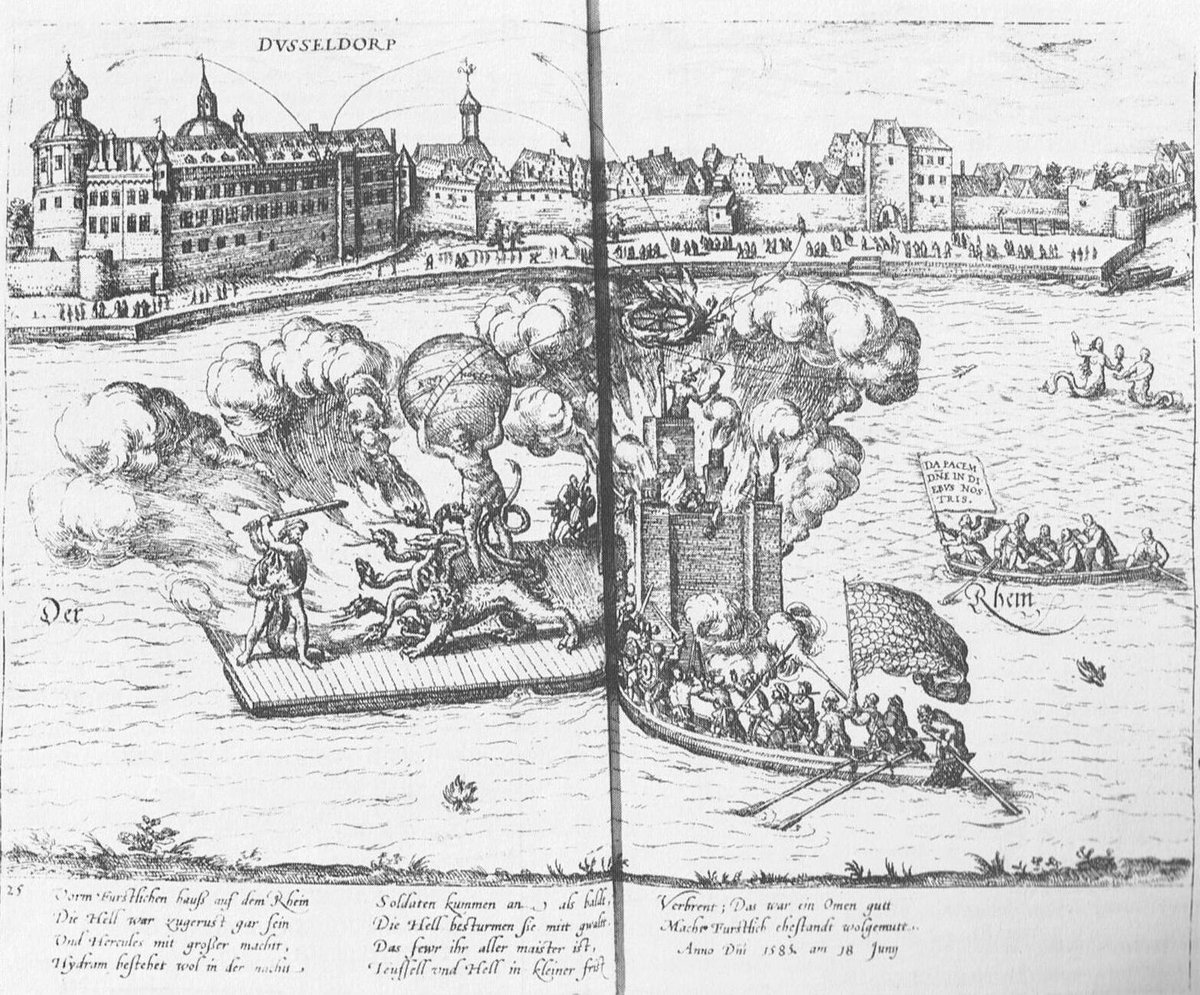 DVSSELDORP
DA PACEM
DÑE IN DI
EBVS NOS
TRIS.
Der
Rhein
25
Vorm Furstlichen hauß auf dem Rhein
Die Hell war zugerust gar fein
Vnd Hercules mit großer macht,
Hydram bestehet wol in der nacht
Soldaten kummen an als baldt,
Die Hell besturmen sie mitt gwaltt
Das fewr ihr aller maister ist,
Teuffell vnd Hell in kleiner frist
Verbrent; Das war ein Omen gutt
Macht Furstlich ehestandt wolgemutt
Anno Dñi 1585. am 18 Junij